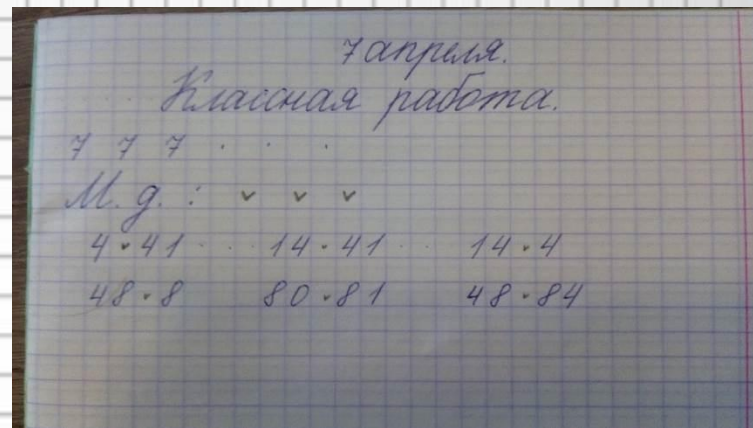 7 апреля.
Классная работа.
7 7 7 . . .
М. д. : ˅ ˅ ˅
4 ˅ 41 14 · 41 14 ˅ 4
48 ˅ 8 80 ˅ 81 48 ˅ 84